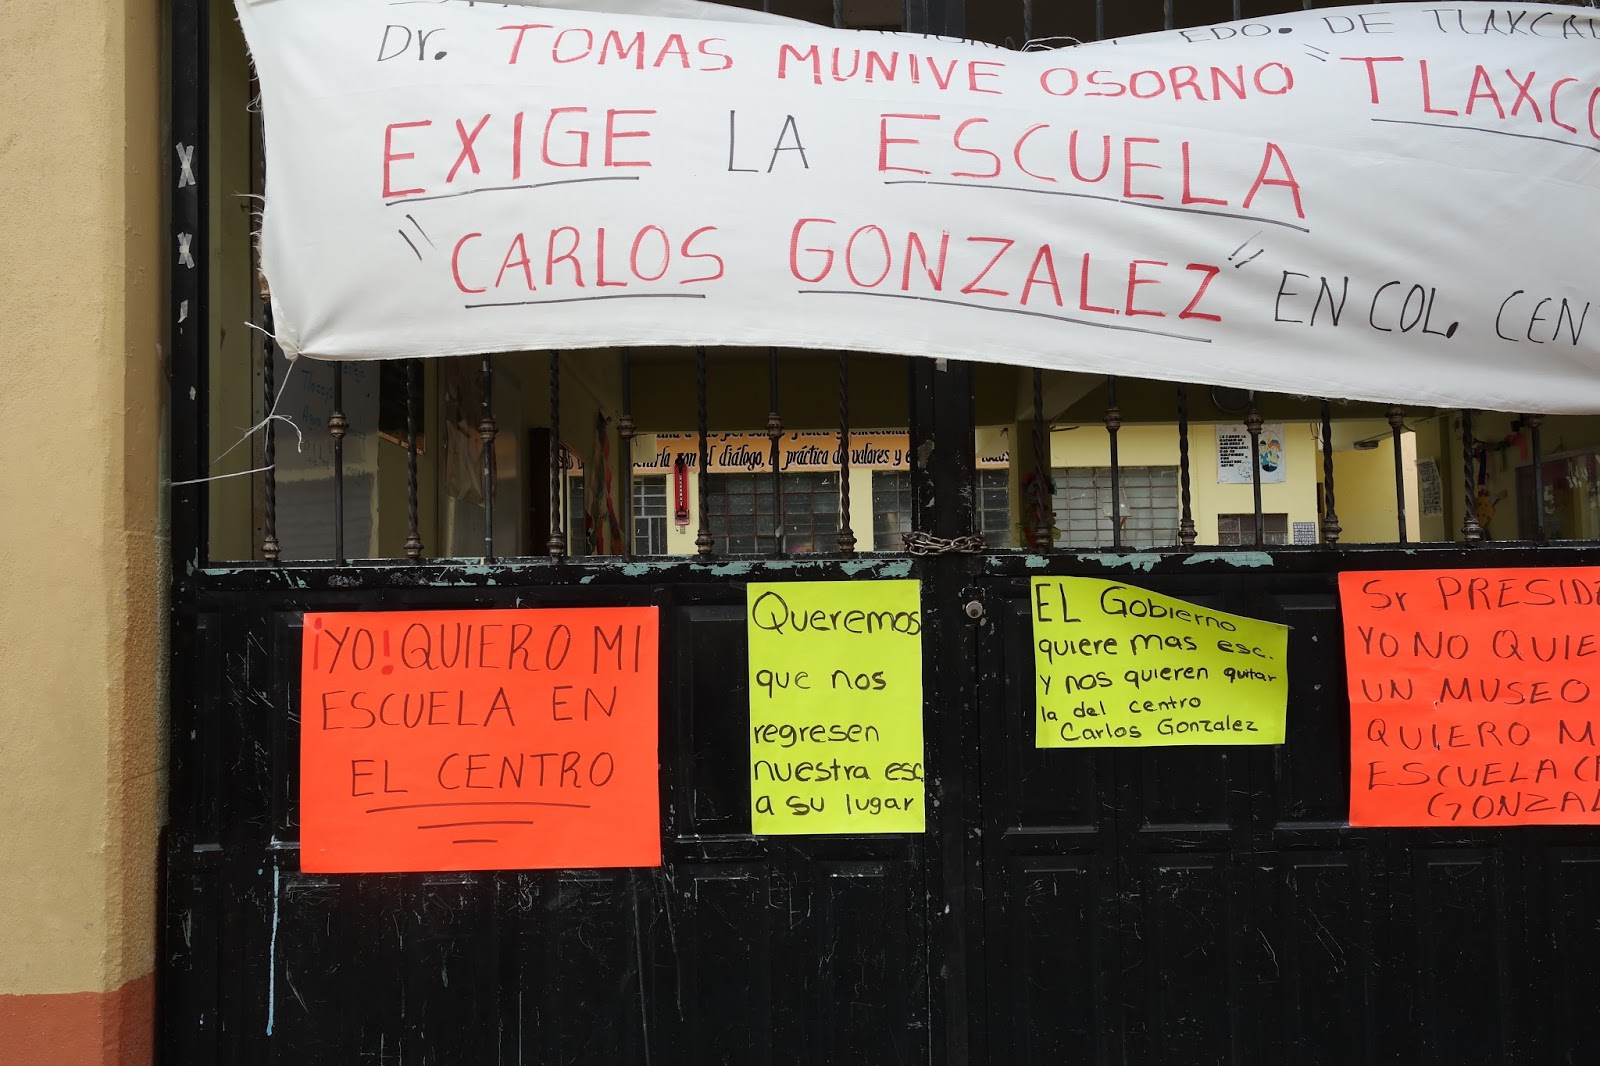 EDO. DE TLAXCAL
Dr. TOMAS MUNIVE OSORNO "TLAXCO
EXIGE LA ESCUELA
"CARLOS GONZALEZ" EN COL. CEN
con el diálogo, la práctica de valores y
¡YO! QUIERO MI
ESCUELA EN
EL CENTRO
Queremos
que nos
regresen
nuestra esc
a su lugar
EL Gobierno
quiere mas esc.
y nos quieren quitar
la del centro
Carlos Gonzalez
Sr PRESIDE
YO NO QUIE
UN MUSEO
QUIERO M
ESCUELA C
GONZAL